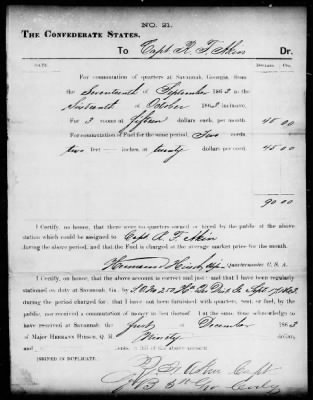 NO. 21.
THE CONFEDERATE STATES.
To Capt. R. T. Akin Dr.
DATE. DOLLARS Cts.
For commutation of quarters at Savannah, Georgia, from
the Seventeenth of September 1863 to the
Sixteenth of October 1863 inclusive,
For 3 rooms at fifteen dollars each, per month. 45 00
For commutation of Fuel for the same period, Two cords
two feet inches, at twenty dollars per cord. 45 00
90 00
I Certify, on honor, that there were no quarters owned or hired by the public at the above
station which could be assigned to Capt. R. T. Akin
during the above period, and that the Fuel is charged at the average market price for the month.
Hermann Hirsch, Quartermaster C. S. A.
I Certify, on honor, that the above account is correct and just; and that I have been regularly
stationed on duty at Savannah, Ga., by S. O. No 212 Hd Qrs Dist Ga Sept 17/1863
during the period charged for; that I have not been furnished with quarters, rent, or fuel, by the
public, nor received a commutation of money in lieu thereof. I at the same time acknowledge to
have received at Savannah the first of December 1863
of Major HERMANN HIRSCH, Q. M. Ninety dollars,
in full of the above account.
[SIGNED IN DUPLICATE.]
R. T. Akin Capt
Co B 5th Geo Cavly